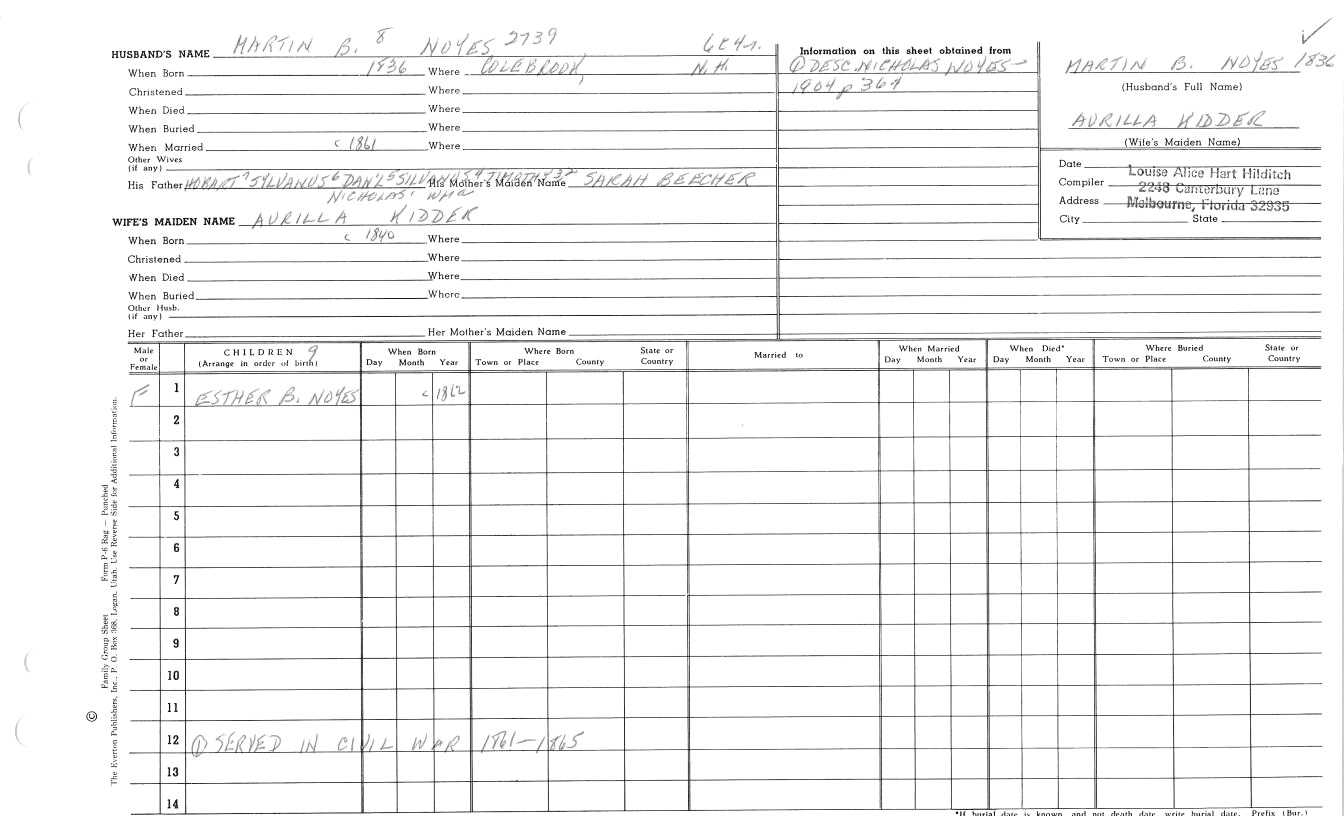 HUSBAND'S NAME MARTIN B. 8 NOYES 2739
When Born 1836 Where COLEBROOK, N.H.
Christened Where
When Died Where
When Buried Where
When Married c 1861 Where
Other Wives
(if any)
His Father HOBART 7 SYLVANUS 6 DAN'L 5 SILVANUS 4 TIMOTHY 3 2 His Mother's Maiden Name SARAH BEECHER
NICHOLAS 1 Wm a
WIFE'S MAIDEN NAME AURILLA KIDDER
When Born c 1840 Where
Christened Where
When Died Where
When Buried Where
Other Husb.
(if any)
Her Father Her Mother's Maiden Name
Information on this sheet obtained from
① DESC. NICHOLAS NOYES -
1904 p 364
✓
MARTIN B. NOYES 1836
(Husband's Full Name)
AURILLA KIDDER
(Wife's Maiden Name)
Date
Compiler Louise Alice Hart Hilditch
2248 Canterbury Lane
Address Melbourne, Florida 32935
City State
Male or Female CHILDREN 9 (Arrange in order of birth) When Born Day Month Year Where Born Town or Place County State or Country Married to When Married Day Month Year When Died* Day Month Year Where Buried Town or Place County State or Country
F 1 ESTHER B. NOYES c 1862
2
3
4
5
6
7
8
9
10
11
12 ① SERVED IN CIVIL WAR 1861-1865
13
14
*If burial date is known and not death date, write burial date. Prefix (Bur.)
Family Group Sheet Form P-6 Rag — Punched
© The Everton Publishers, Inc., P. O. Box 368, Logan, Utah. Use Reverse Side for Additional Information.